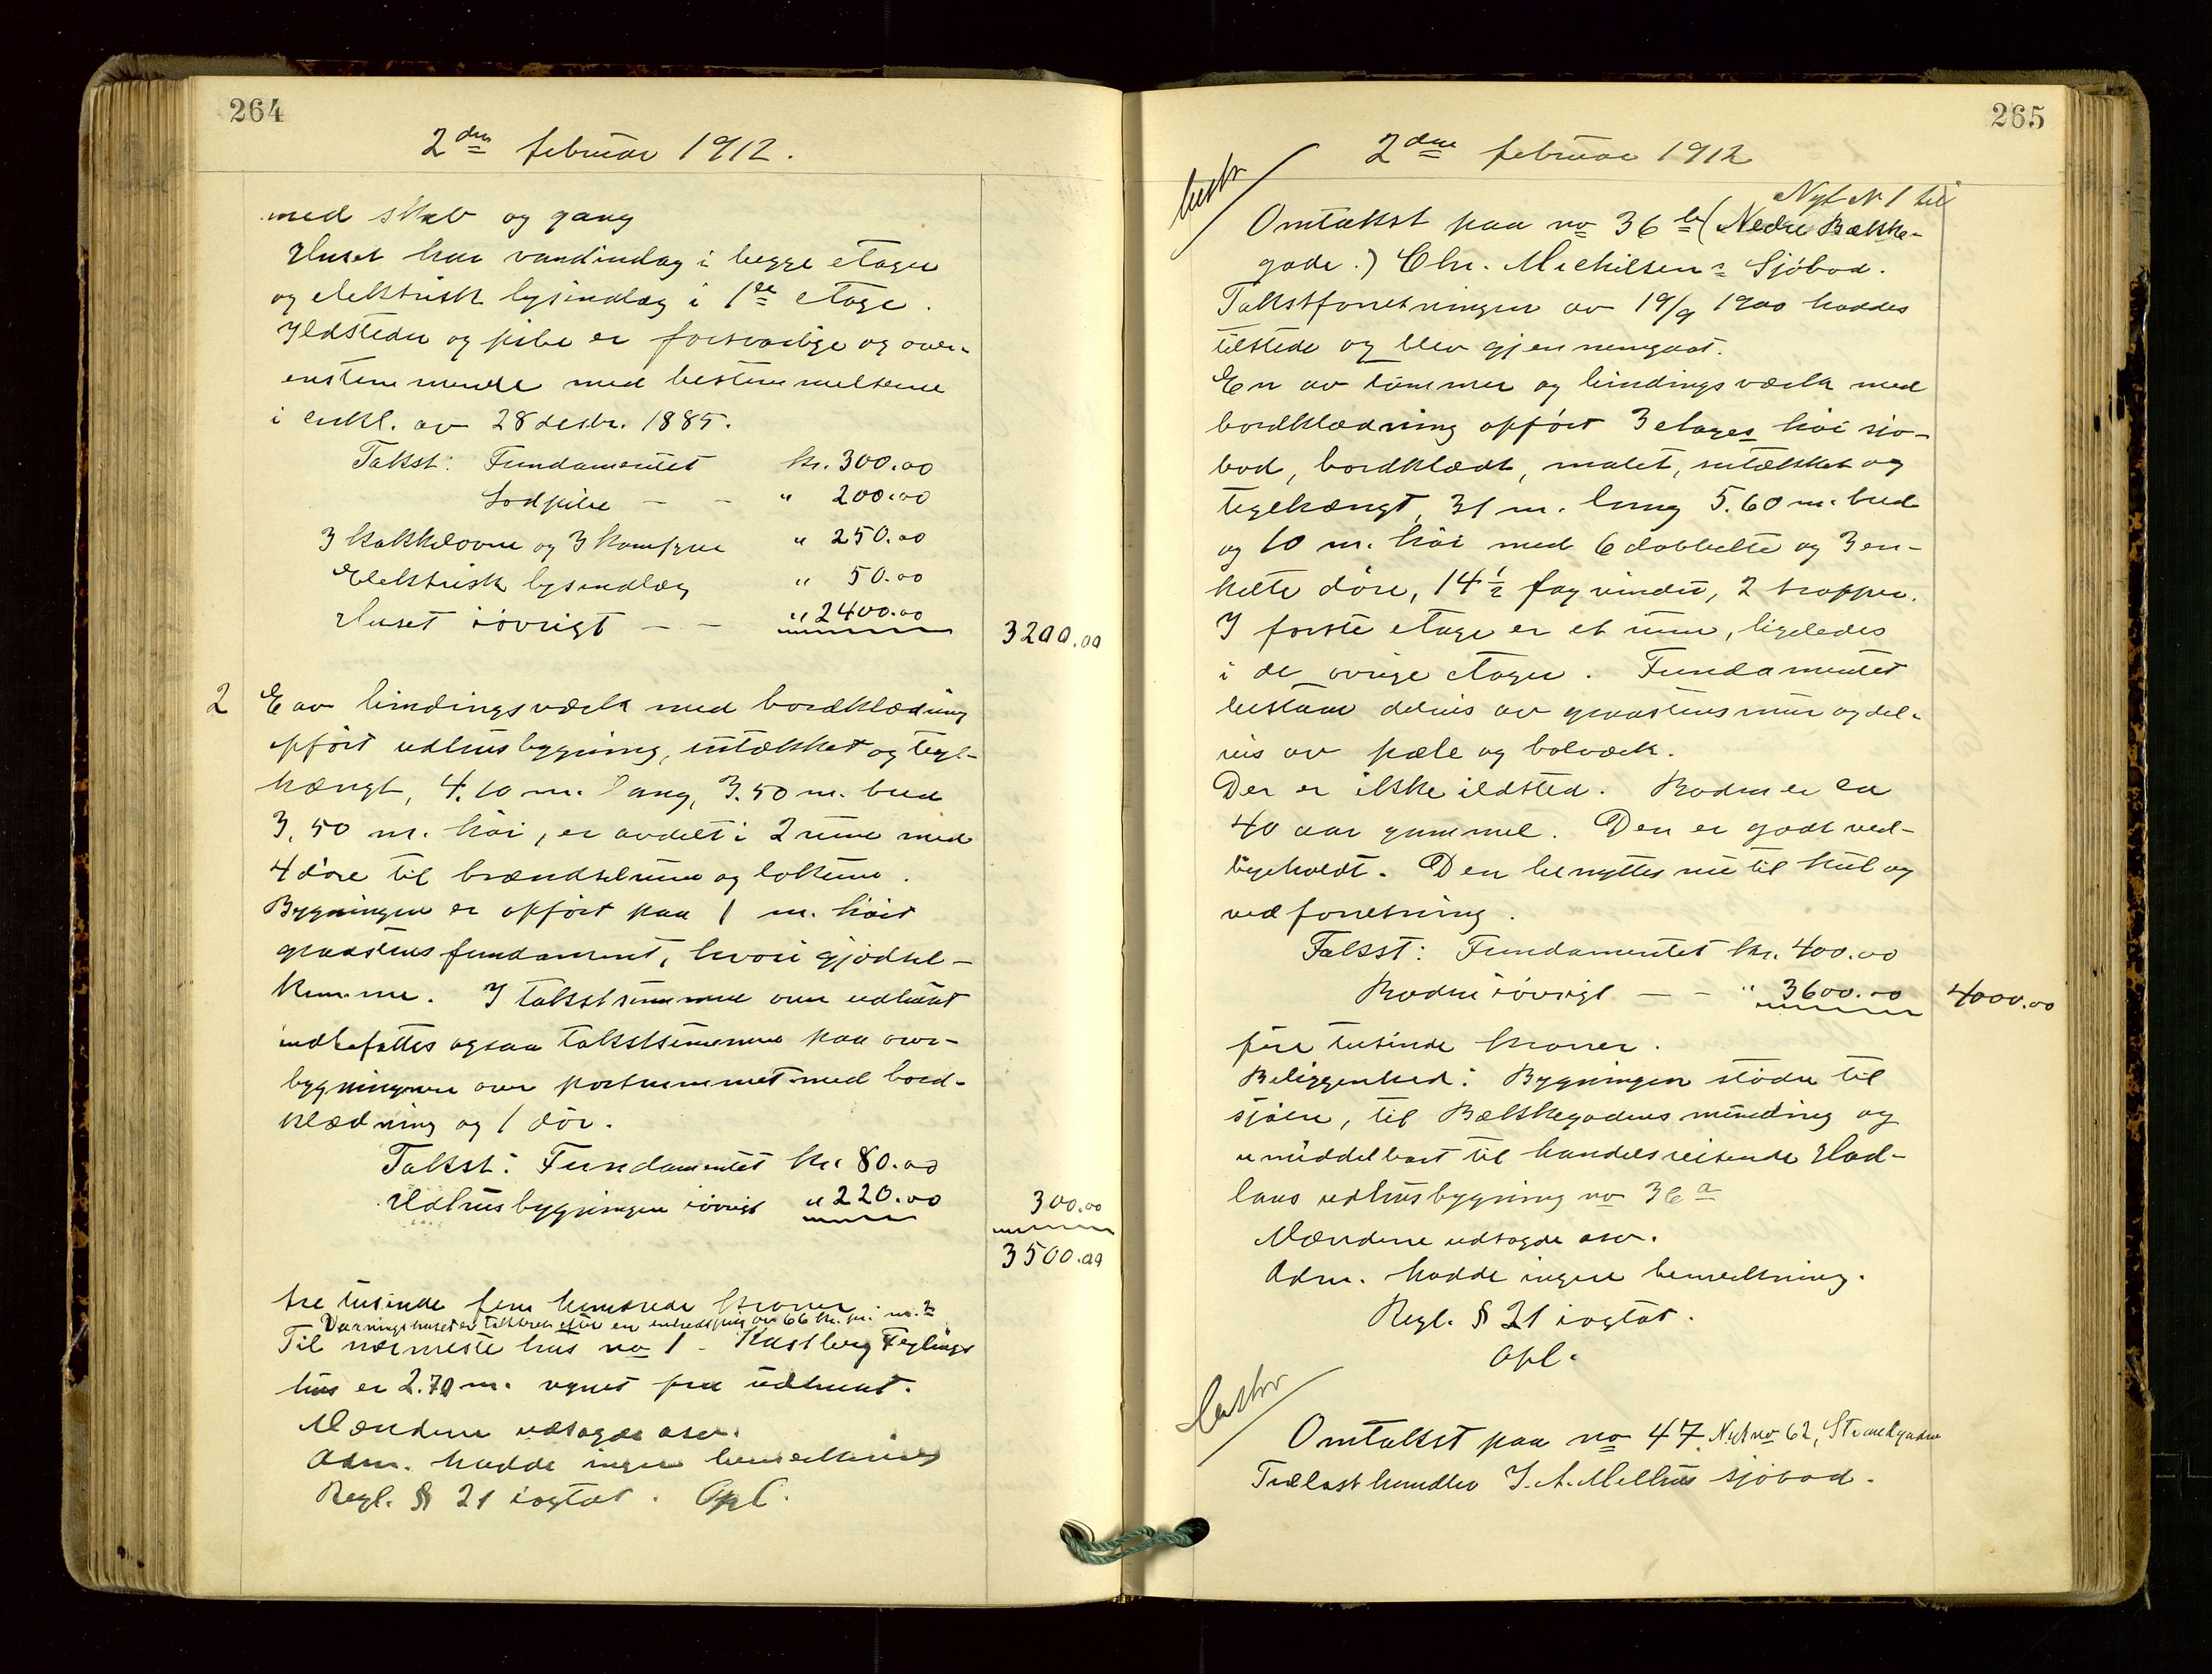 264
2den februar 1912.
med skab og gang
Huset har vandindlæg i begge etager
og elektrisk lysindlæg i 1ste etage.
Ildsteder og pibe er forsvarlige og over-
enstemmende med bestemmelserne
i cirkl. av 28 decbr. 1885.
Takst: Fundamentet kr. 300.00
Lodpibe — — " 200.00
3 kakkelovne og 3 komfyrer " 250.00
Elektrisk lysindlæg " 50.00
Huset iøvrigt — — " 2400.00 3200.00
2 E av bindingsværk med bordklædning
opført udhusbygning, sutækket og tegl-
hængt, 4.10 m. lang, 3.50 m. bred
3,50 m. høi, er avdelt i 2 rum med
4 døre til brændselrum og lokum.
Bygningen er opført paa 1 m. høit
graastens fundament, hvori gjødsel-
kumme. I takstsummen over udhuset
indbefattes ogsaa takstsummen paa over-
bygningen over portrummet med bord-
klædning og 1 dør.
Takst: Fundamentet kr. 80.00
Udhusbygningen iøvrigt " 220.00 300.00
3500.00
tre tusinde fem hundrede kroner
Vaaningshuset er takseret efter en enhedspris av 66 kr. pr. m.2
Til nærmeste hus no 1 - Kastberg Feylings
hus er 2.70 m. regnet fra udhuset.
Mændene udtagde osv.
Adm. hadde ingen bemerkning
Regl. § 21 iagtat. Opl.
265
2den februar 1912
Nyt No 1 til
Omtakst paa no 36 b (Nedre Bække-
gade.) Chr. Michelsens Sjøbod.
Takstforretningen av 19/9 1900 haddes
tilstede og blev gjennemgaat.
En av tømmer og bindingsværk med
bordklædning opført 3 etages høi sjø-
bod, bordklædt, malet, sutækket og
teglhængt, 31 m. lang 5.60 m. bred
og 10 m. høi med 6 dobbelte og 3 en-
kelte døre, 14 1/2 fag vinduer, 2 trapper.
I første etage er et rum, ligeledes
i de øvrige etager. Fundamentet
bestaar delvis av graastensmur og del-
vis av pæle og bolværk.
Der er ikke ildsted. Boden er ca
40 aar gammel. Den er godt ved-
ligeholdt. Den benyttes nu til kul og
vedforretning.
Takst: Fundamentet kr. 400.00
Boden iøvrigt — — " 3600.00 4000.00
fire tusinde kroner.
Beliggenhed: Bygningen støder til
sjøen, til Bækkegadens munding og
umiddelbart til handelsreisende Had-
lans udhusbygning no 36 a
Mændene udsagde osv.
Adm. hadde ingen bemerkning.
Regl. § 21 iagtat.
Opl.
Omtakst paa no 47. Nyt no 62, Strandgaden
Trælasthandler J. A. Mellhus sjøbod.